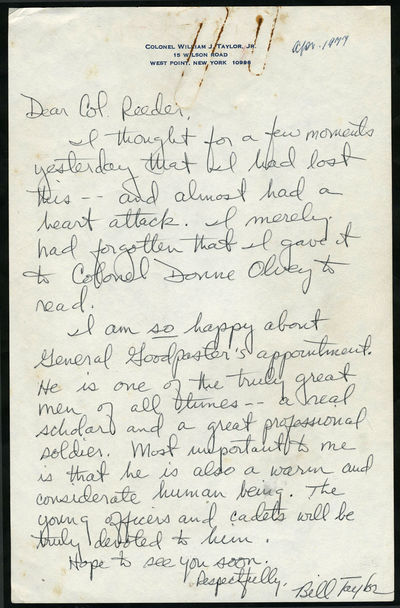 COLONEL WILLIAM J. TAYLOR, JR.
15 WILSON ROAD
WEST POINT, NEW YORK 10996
Apr. 1977
Dear Col. Reeder,
I thought for a few moments
yesterday that I had lost
this -- and almost had a
heart attack. I merely
had forgotten that I gave it
to Colonel Donne Olvey to
read.
I am so happy about
General Goodpaster's appointment.
He is one of the truly great
men of all times -- a real
scholar and a great professional
soldier. Most important to me
is that he is also a warm and
considerate human being. The
young officers and cadets will be
truly devoted to him.
Hope to see you soon.
Respectfully,
Bill Taylor